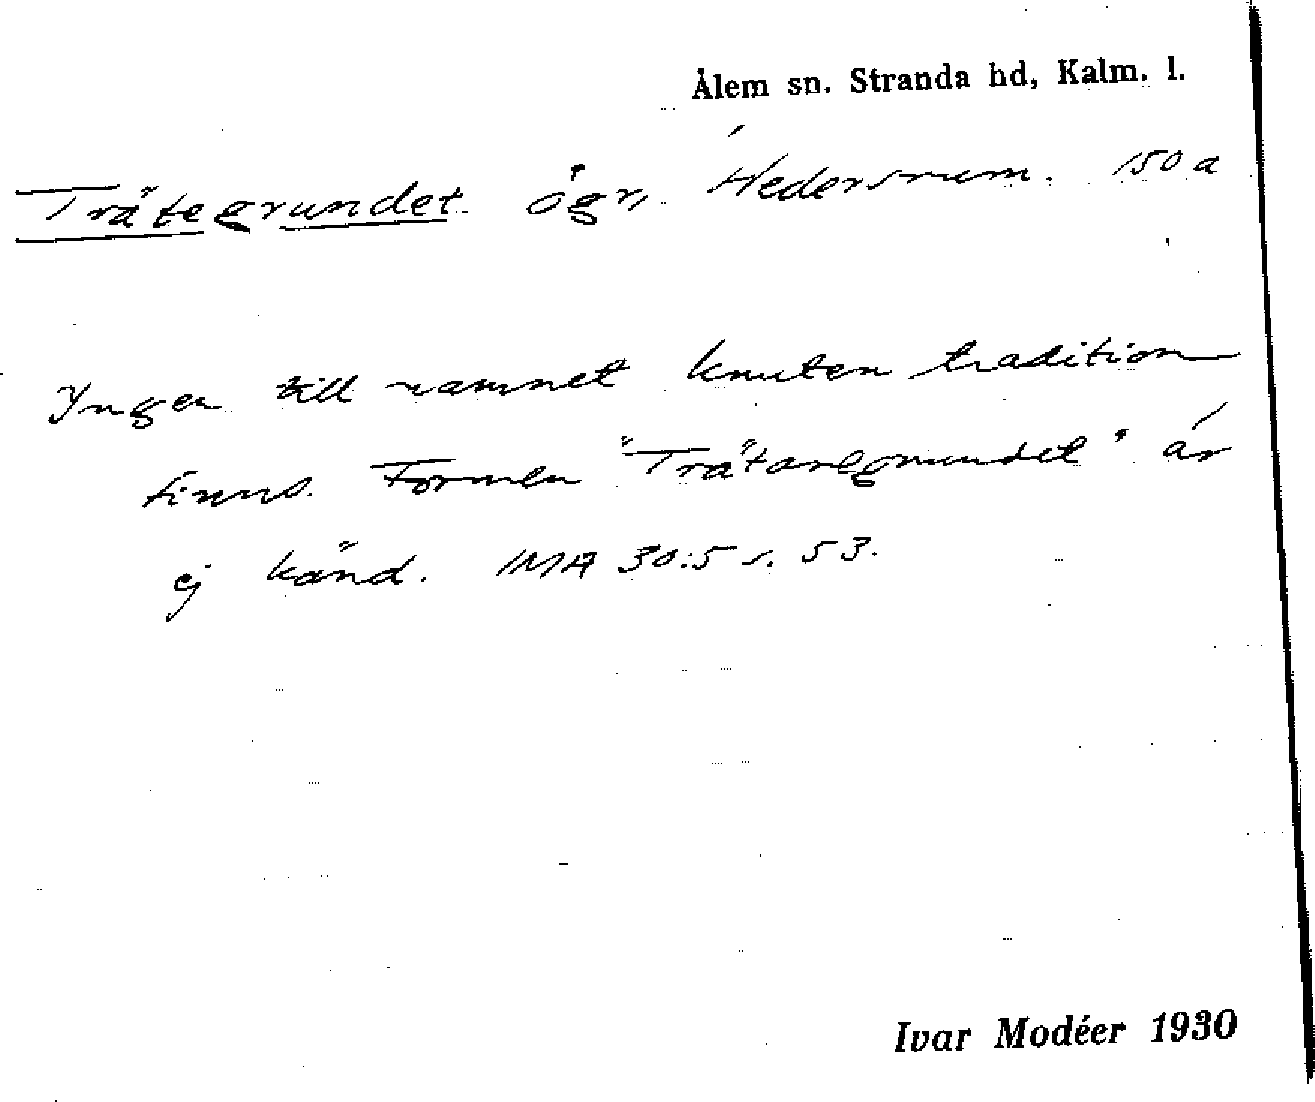 Ålem sn. Stranda hd, Kalm. l.
Trätegrundet ögr, Hedersrum. 150 a
Ingen till namnet knuten tradition
finns. Formen "Trätaregrundet" är
ej känd. IMA 30:5 s. 53.
Ivar Modéer 1930